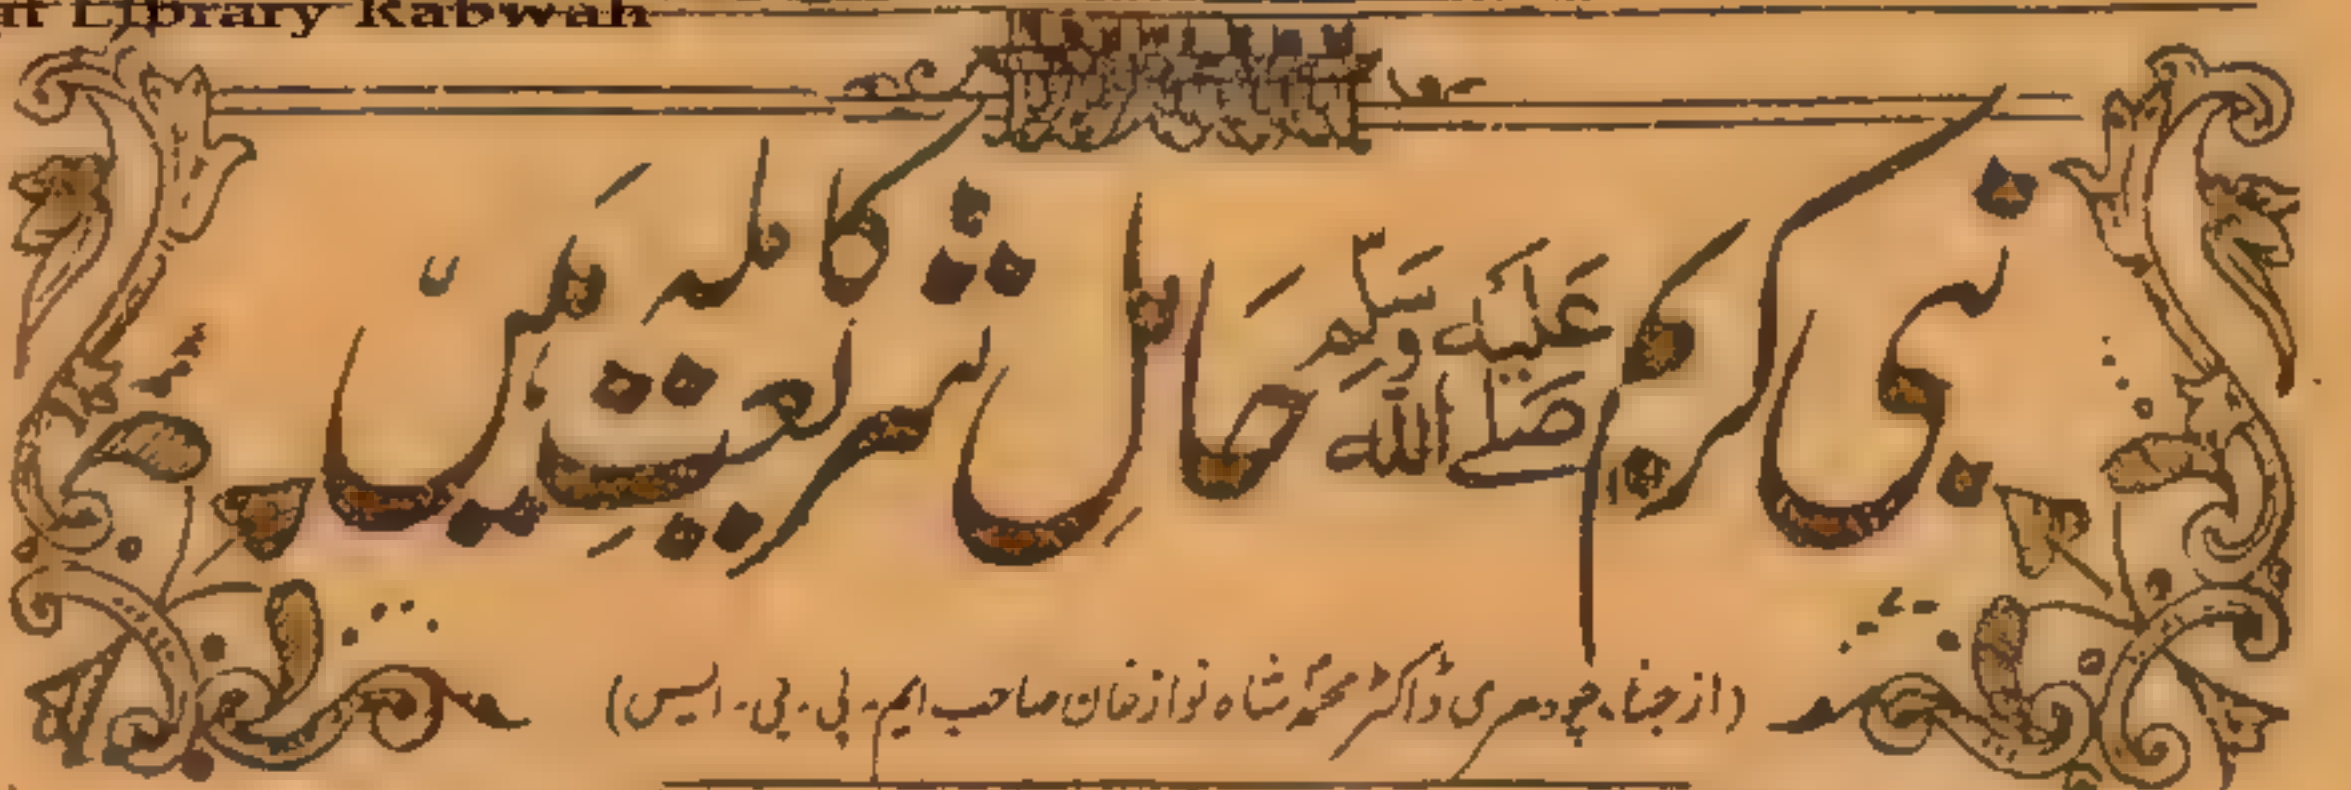 Library Rabwah
نبی کریم صلی اللہ علیہ وسلم حاملِ شریعتِ کاملہ ہیں
(از جناب چودھری ڈاکٹر محمد شاہ نواز خان صاحب ایم۔ بی۔ بی۔ ایس)